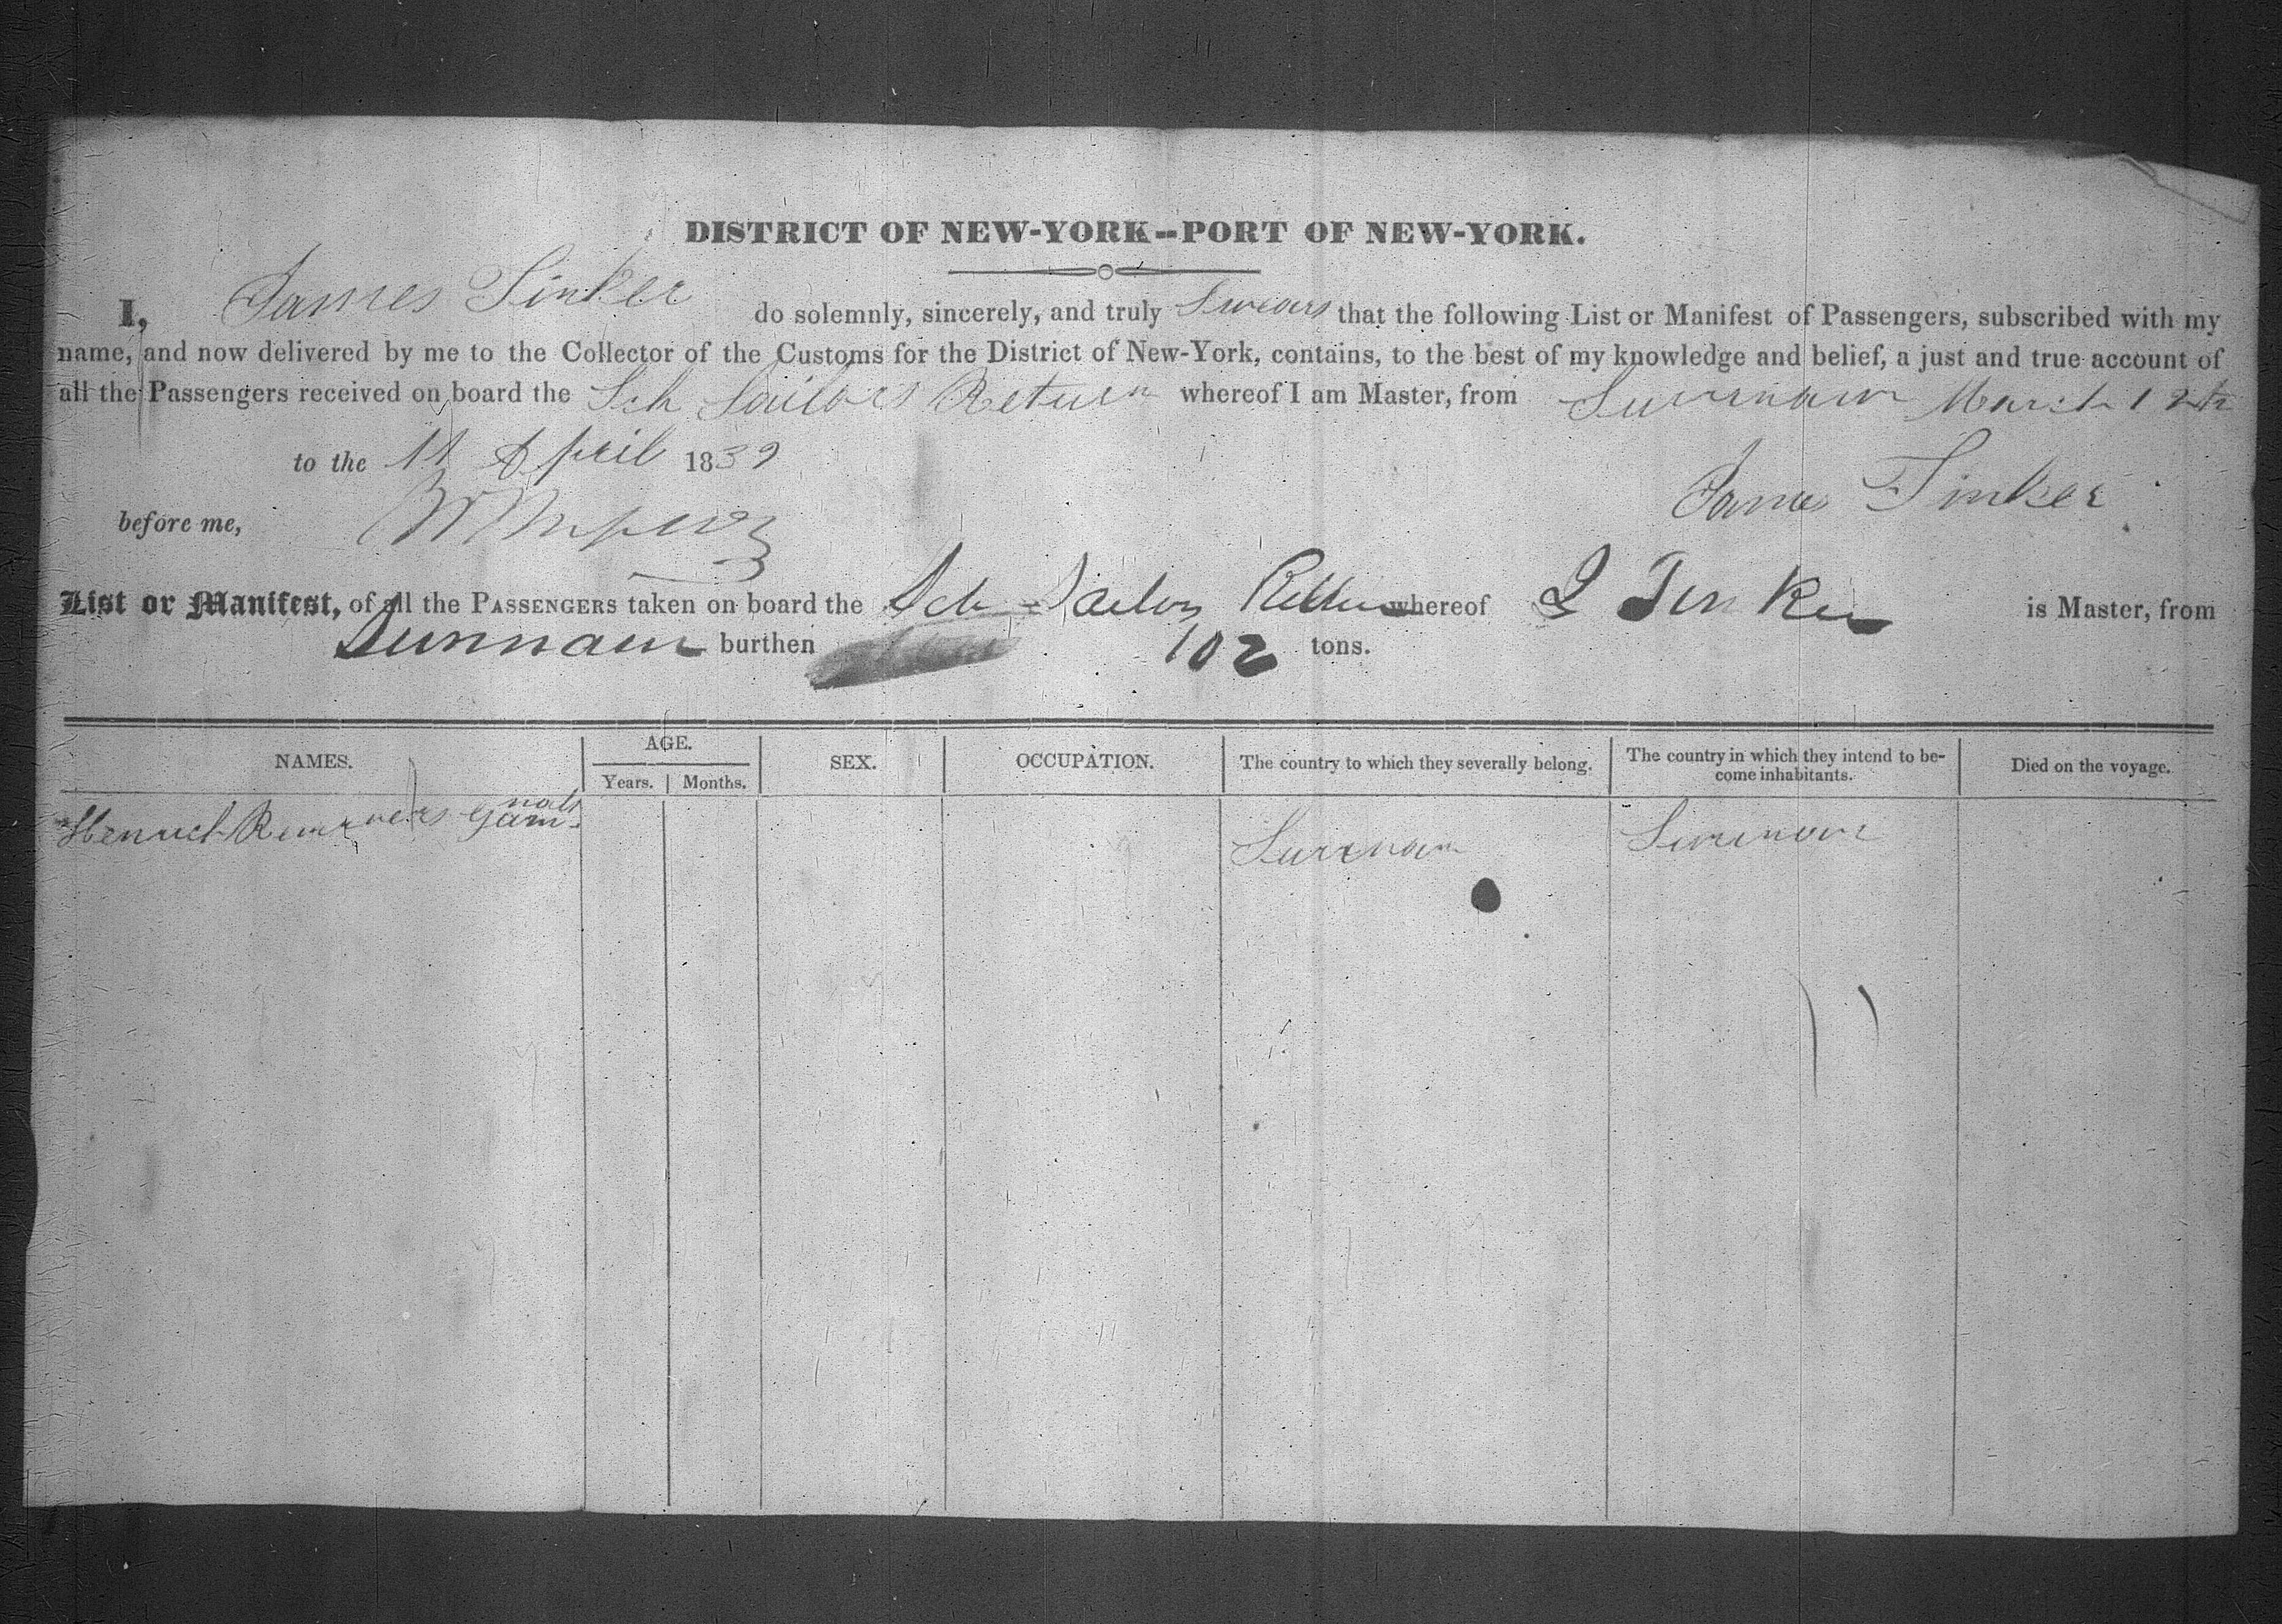 DISTRICT OF NEW-YORK--PORT OF NEW-YORK.
I, James Tinker do solemnly, sincerely, and truly Swears that the following List or Manifest of Passengers, subscribed with my
name, and now delivered by me to the Collector of the Customs for the District of New-York, contains, to the best of my knowledge and belief, a just and true account of
all the Passengers received on board the Sch Sailors Return whereof I am Master, from Surrnam March 12th
to the 1st April 1839
James Tinker
before me,
List or Manifest, of all the PASSENGERS taken on board the Sch Sailors Return whereof J Tinker is Master, from
Surinam burthen 102 tons.
NAMES. AGE. SEX. OCCUPATION. The country to which they severally belong. The country in which they intend to be-
come inhabitants. Died on the voyage.
Years. Months.
Surinam Surinam